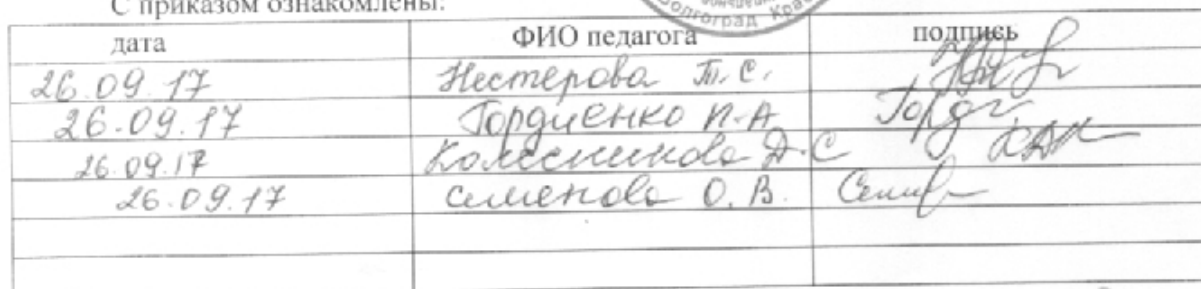 С приказом ознакомлены:
Волгоград Крас
дата ФИО педагога подпись
26.09.17 Нестерова Т.С.
26.09.17 Гордиенко Н.А Горд
26.09.17 Колесникова Д.С
26.09.17 Семенова О.В. Сем